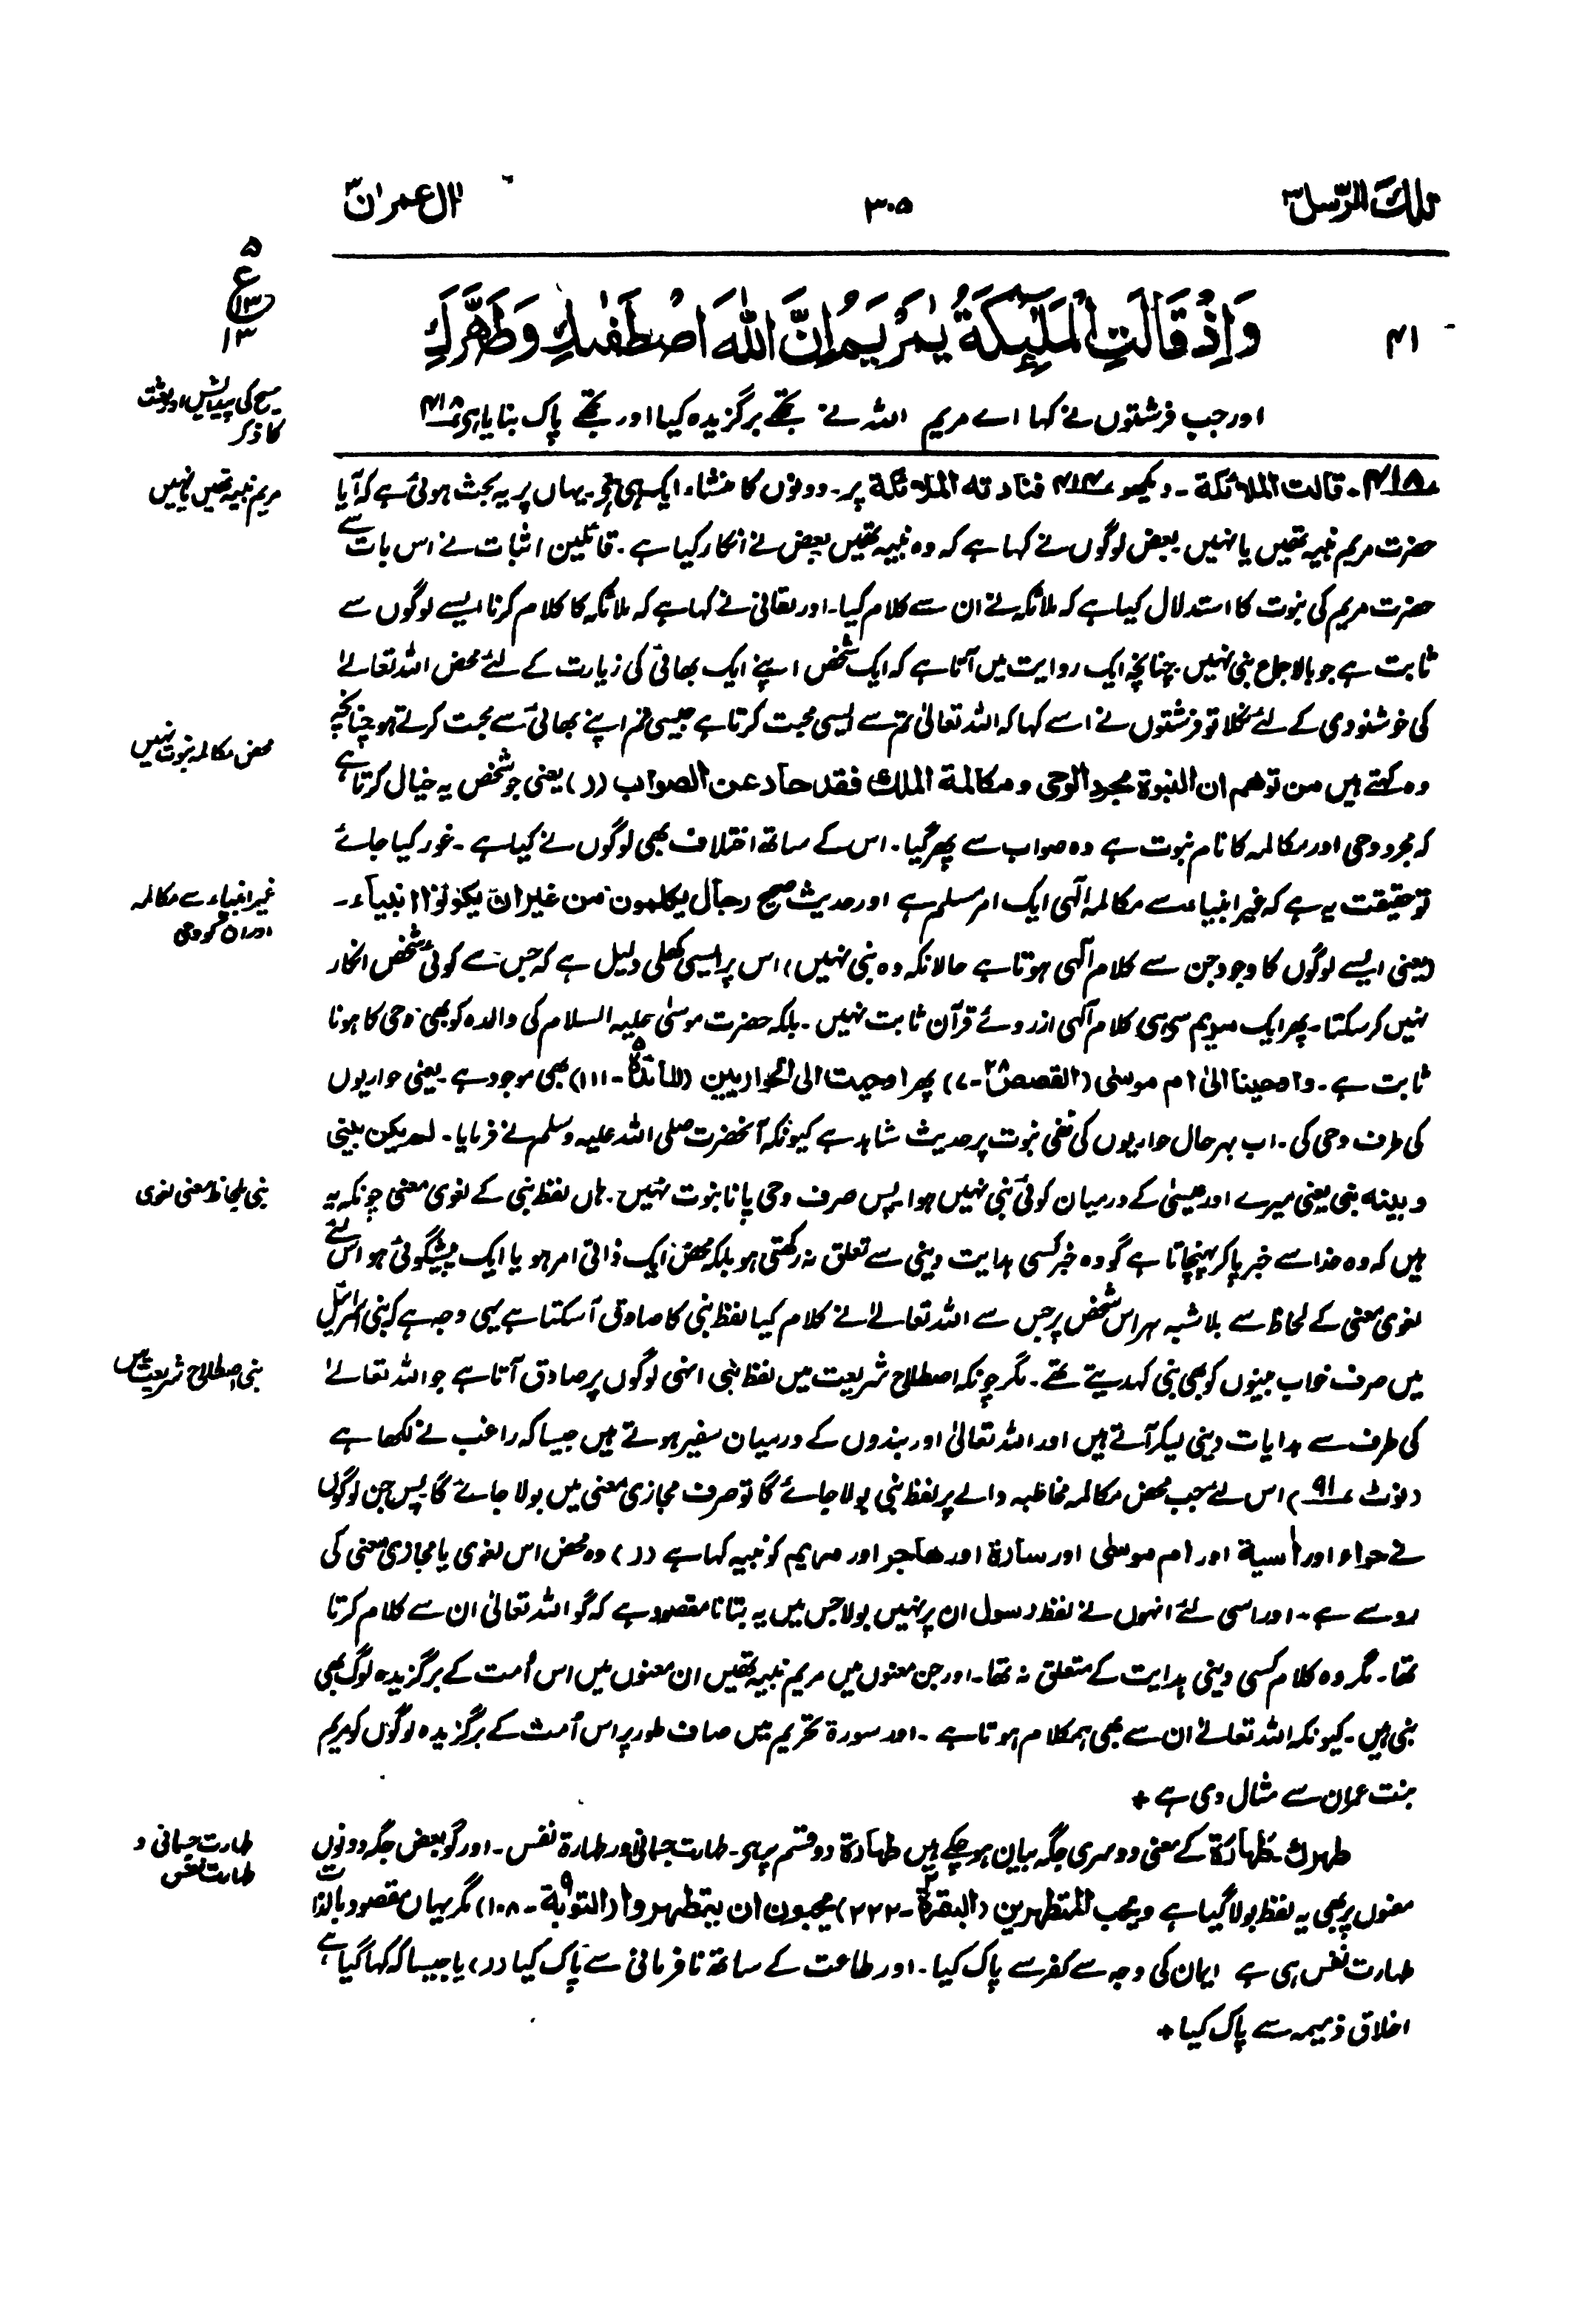 تلك الرسل ۳
۳۰۵
اٰل عمران ۳
۵
ع
۱۳
۱۳
۴۱
وَاِذْ قَالَتِ الْمَلٰٓئِكَةُ يٰمَرْيَمُ اِنَّ اللّٰهَ اصْطَفٰىكِ وَطَهَّرَكِ
اور جب فرشتوں نے کہا اے مریم اللہ نے تجھے برگزیدہ کیا اور تجھے پاک بنایا ہی ۴۱۸
مسیح کی پیدائش اور بعثت
کا ذکر
۴۱۸۔ قالت الملائکة۔ دیکھو ۴۱۴ فنادته الملائکة پر۔ دونوں کا منشاء ایک ہی ہے۔ یہاں پر یہ بحث ہوئی ہے کہ آیا
مریم نبیہ تھیں یا نہیں
حضرت مریم نبیہ تھیں یا نہیں۔ بعض لوگوں نے کہا ہے کہ وہ نبیہ تھیں بعض نے انکار کیا ہے۔ قائلین اثبات نے اس بات سے
حضرت مریم کی نبوت کا استدلال کیا ہے کہ ملائکہ نے ان سے کلام کیا۔ اور لقانی نے کہا ہے کہ ملائکہ کا کلام کرنا ایسے لوگوں سے
ثابت ہے جو بالاجماع نبی نہیں۔ چنانچہ ایک روایت میں آتا ہے کہ ایک شخص اپنے ایک بھائی کی زیارت کے لئے محض اللہ تعالےٰ
کی خوشنودی کے لئے نکلا تو فرشتوں نے اسے کہا کہ اللہ تعالیٰ تم سے ایسی محبت کرتا ہے جیسی تم اپنے بھائی سے محبت کرتے ہو چنانچہ
محض مکالمہ نبوت نہیں
وہ کہتے ہیں من توهم ان النبوة مجرد الوحی و مکالمة الملك فقد حاد عن الصواب (ر) یعنی جو شخص یہ خیال کرتا ہے
کہ مجرد وحی اور مکالمہ کا نام نبوت ہے وہ صواب سے پھر گیا۔ اس کے ساتھ اختلاف بھی لوگوں نے کیا ہے۔ غور کیا جائے
تو حقیقت یہ ہے کہ غیر انبیاء سے مکالمہ الٰہی ایک امر مسلم ہے اور حدیث صحیح رجال یکلمون من غیر ان یکونوا انبیاء۔
غیر انبیاء سے مکالمہ
اور ان کو وحی
(یعنی ایسے لوگوں کا وجود جن سے کلام آلٰہی ہوتا ہے حالانکہ وہ نبی نہیں) اس پر ایسی کھلی دلیل ہے کہ جس سے کوئی شخص انکار
نہیں کر سکتا۔ پھر ایک مریم سے ہی کلام آلٰہی ازروئے قرآن ثابت نہیں۔ بلکہ حضرت موسیٰ علیہ السلام کی والدہ کو بھی وحی کا ہونا
ثابت ہے۔ و اوحینا الیٰ ام موسیٰ (القصص ۲۸۔۷) پھر اوحیت الی الحواریین (المائدة ۵۔۱۱۱) بھی موجود ہے۔ یعنی حواریوں
کی طرف وحی کی۔ اب بہرحال حواریوں کی نفی نبوت پر حدیث شاہد ہے کیونکہ آنحضرت صلی اللہ علیہ وسلم نے فرمایا۔ لم یکن بینی
و بینه نبی یعنی میرے اور عیسیٰ کے درمیان کوئی نبی نہیں ہوا۔ پس صرف وحی پانا نبوت نہیں۔ ہاں لفظ نبی کے لغوی معنی چونکہ یہ
نبی بلحاظ معنی لغوی
ہیں کہ وہ خدا سے خبر پا کر پہنچاتا ہے گو وہ خبر کسی ہدایت دینی سے تعلق نہ رکھتی ہو بلکہ محض ایک ذاتی امر ہو یا ایک پیشگوئی ہو اس لئے
لغوی معنی کے لحاظ سے بلا شبہ ہر اس شخص پر جس سے اللہ تعالےٰ نے کلام کیا لفظ نبی کا صادق آ سکتا ہے یہی وجہ ہے کہ بنی اسرائیل
میں صرف خواب بینوں کو بھی نبی کہدیتے تھے۔ مگر چونکہ اصطلاح شریعت میں لفظ نبی انہی لوگوں پر صادق آتا ہے جو اللہ تعالےٰ
نبی اصطلاح شریعت میں
کی طرف سے ہدایات دینی لیکر آتے ہیں اور اللہ تعالیٰ اور بندوں کے درمیان سفیر ہوتے ہیں جیسا کہ راغب نے لکھا ہے
(نوٹ ۹۱) اس لئے جب محض مکالمہ مخاطبہ والے پر لفظ نبی بولا جائے گا تو صرف مجازی معنی میں بولا جائے گا پس جن لوگوں
نے حواء اور اٰسیة اور ام موسیٰ اور سارة اور هاجر اور مریم کو نبیہ کہا ہے (ر) وہ محض اس لغوی یا مجازی معنی کی
رو سے ہے۔ اور اسی لئے انہوں نے لفظ رسول ان پر نہیں بولا جس میں یہ بتانا مقصود ہے کہ گو اللہ تعالیٰ ان سے کلام کرتا
تھا۔ مگر وہ کلام کسی دینی ہدایت کے متعلق نہ تھا۔ اور جن معنوں میں مریم نبیہ تھیں ان معنوں میں اس اُمت کے برگزیدہ لوگ بھی
نبی ہیں۔ کیونکہ اللہ تعالےٰ ان سے بھی ہمکلام ہوتا ہے۔ اور سورة تحریم میں صاف طور پر اس اُمت کے برگزیدہ لوگوں کو مریم
بنت عمران سے مثال دی ہے +
طهرك۔ طَهارَة کے معنی دوسری جگہ بیان ہو چکے ہیں طهارة دو قسم پر ہی۔ طہارت جسمانی اور طہارة نفس۔ اور گو بعض جگہ دونوں
طہارت جسمانی و
طہارت نفس
معنوں پر بھی یہ لفظ بولا گیا ہے ویحب المتطهرین (البقرة ۲۔۲۲۲) یحبون ان یتطهروا (التوبة ۹۔۱۰۸) مگر یہاں مقصود بالذات
طہارت نفس ہی ہے ایمان کی وجہ سے کفر سے پاک کیا۔ اور طاعت کے ساتھ نافرمانی سے پاک کیا (ر) یا جیسا کہ کہا گیا ہے
اخلاق ذمیمہ سے پاک کیا +